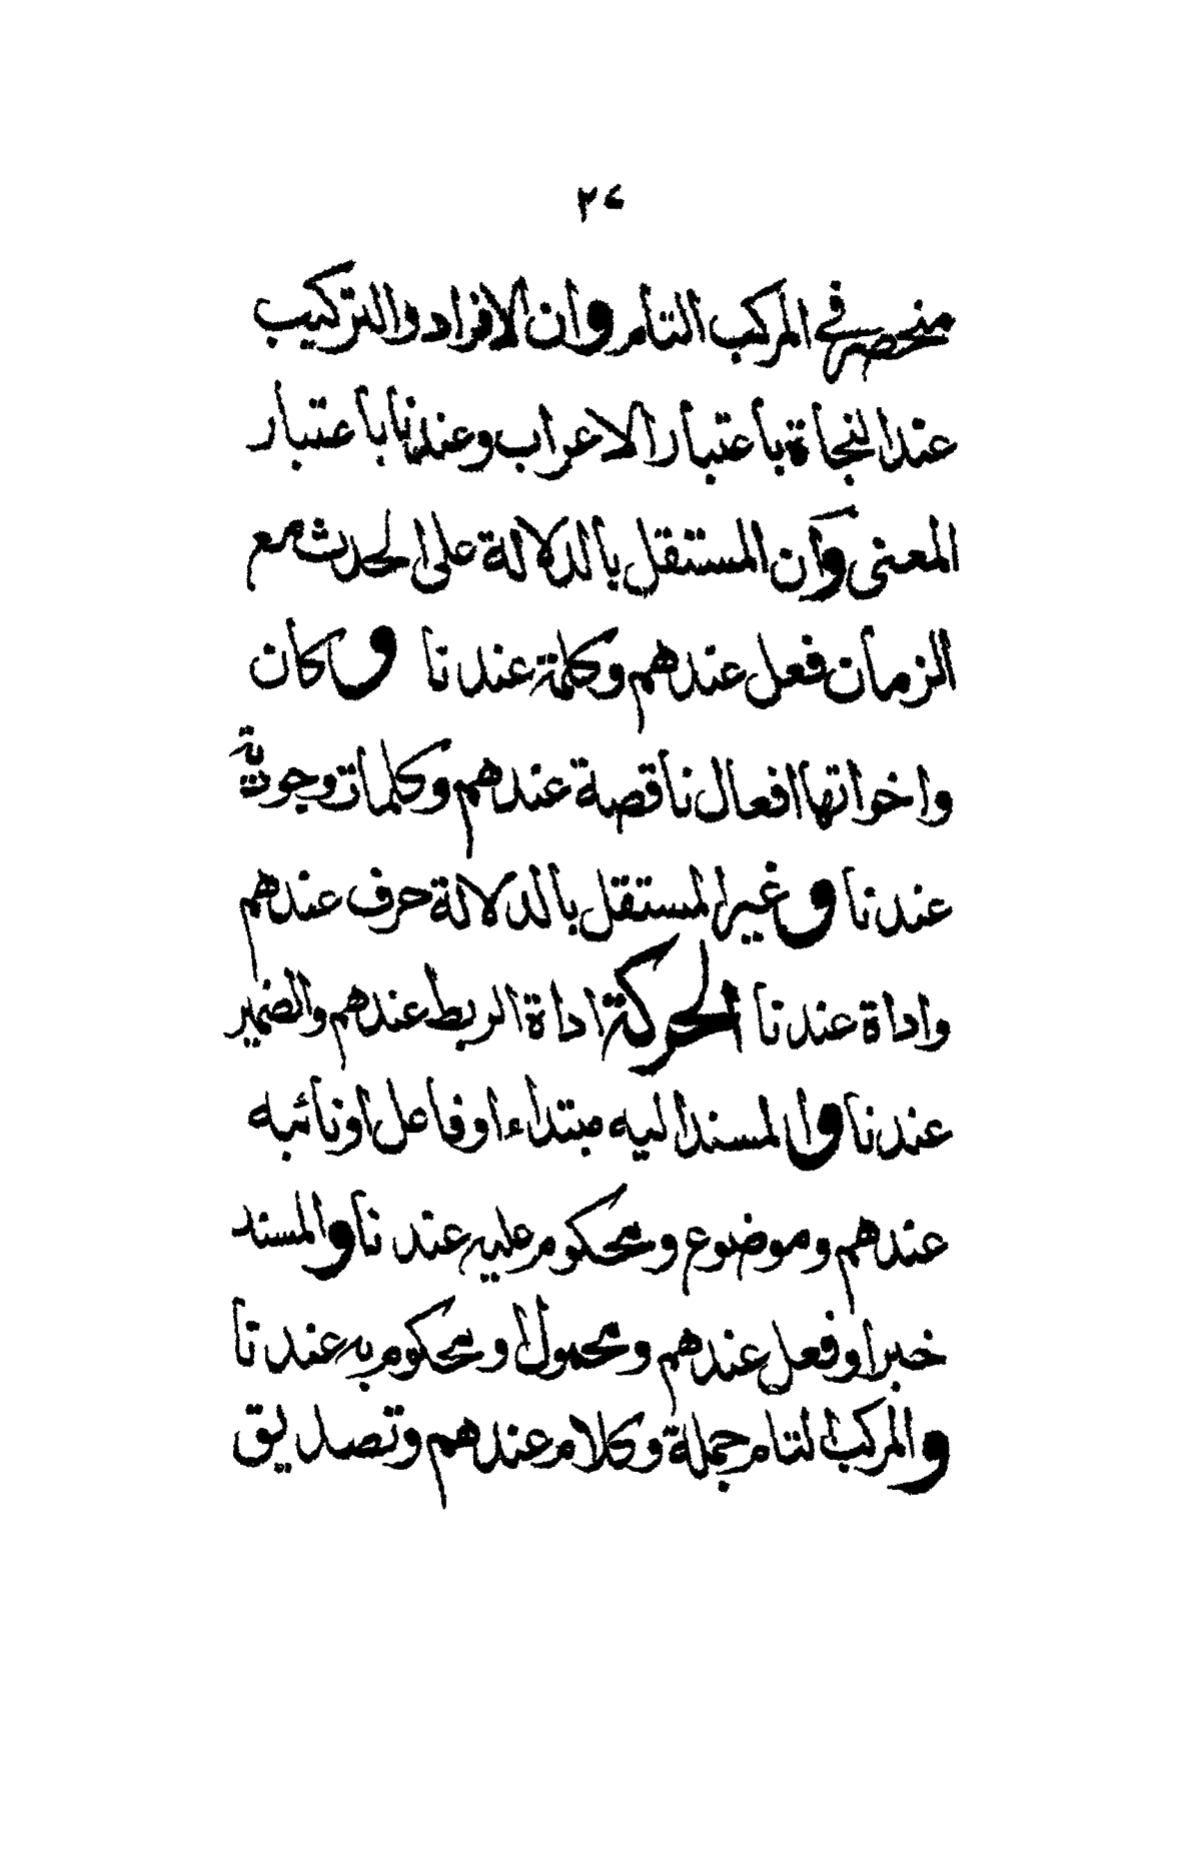 ٢٤
منحصر في المركب التام وان الافراد والتركيب
عند النحاة باعتبار الاعراب وعندنا باعتبار
المعنى وان المستقل بالدلالة على الحدث مع
الزمان فعل عندهم وكلمة عندنا وكان
واخواتها افعال ناقصة عندهم وكلمات وجودية
عندنا وغير المستقل بالدلالة حرف عندهم
واداة عندنا الحركة اداة الربط عندهم والضمير
عندنا والمسند اليه مبتداء او فاعل او نائبه
عندهم وموضوع ومحكوم عليه عندنا والمسند
خبر او فعل عندهم ومحمول او محكوم به عندنا
والمركب التام جملة وكلام عندهم وتصديق